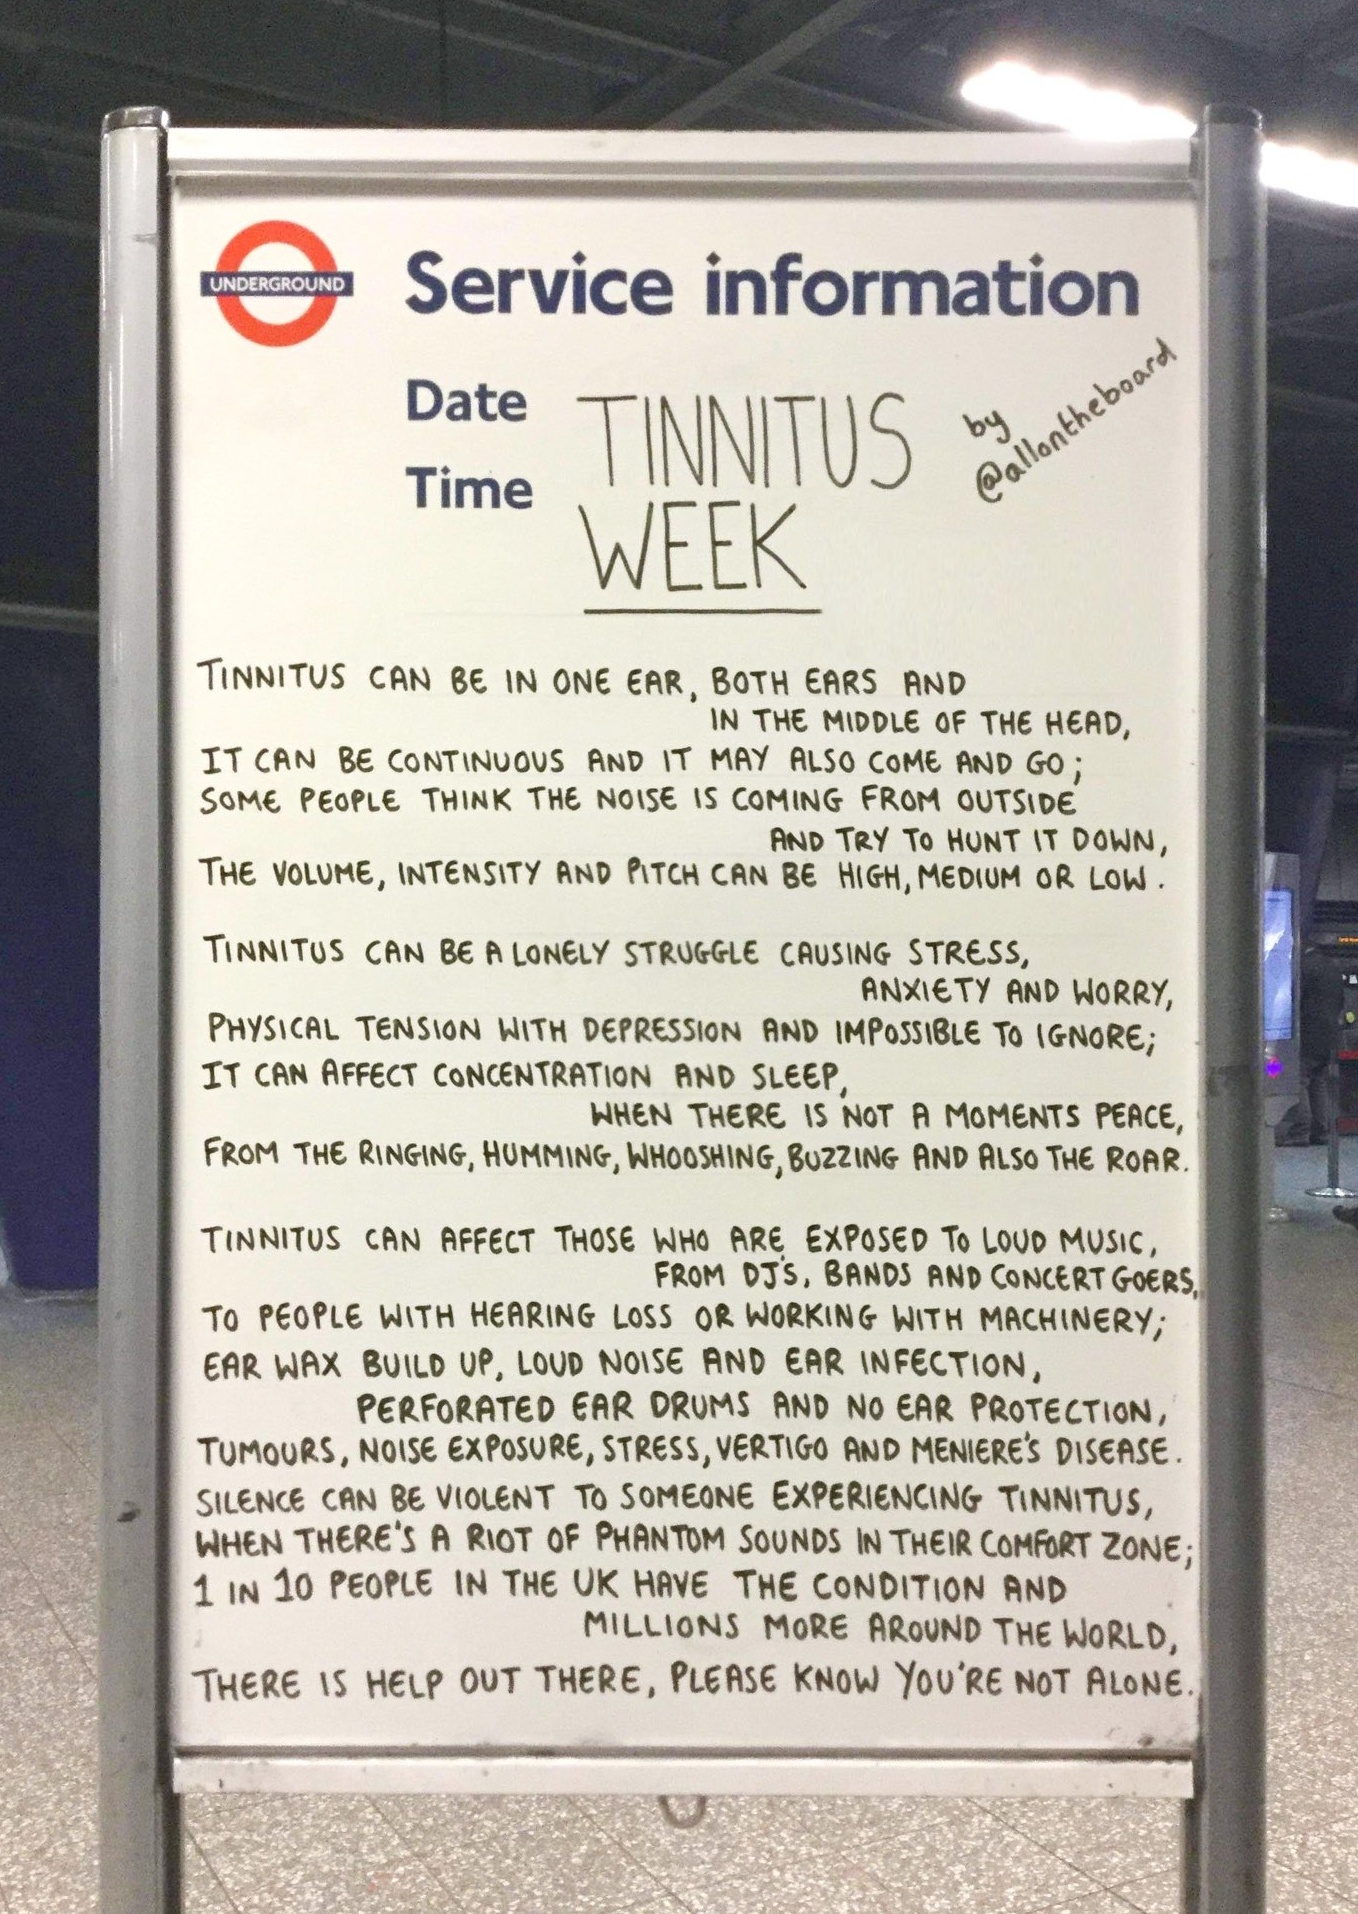 UNDERGROUND
Service information
Date
Time
TINNITUS
WEEK
by
@allontheboard
TINNITUS CAN BE IN ONE EAR, BOTH EARS AND
IN THE MIDDLE OF THE HEAD,
IT CAN BE CONTINUOUS AND IT MAY ALSO COME AND GO;
SOME PEOPLE THINK THE NOISE IS COMING FROM OUTSIDE
AND TRY TO HUNT IT DOWN,
THE VOLUME, INTENSITY AND PITCH CAN BE HIGH, MEDIUM OR LOW.
TINNITUS CAN BE A LONELY STRUGGLE CAUSING STRESS,
ANXIETY AND WORRY,
PHYSICAL TENSION WITH DEPRESSION AND IMPOSSIBLE TO IGNORE;
IT CAN AFFECT CONCENTRATION AND SLEEP,
WHEN THERE IS NOT A MOMENTS PEACE,
FROM THE RINGING, HUMMING, WHOOSHING, BUZZING AND ALSO THE ROAR.
TINNITUS CAN AFFECT THOSE WHO ARE EXPOSED TO LOUD MUSIC,
FROM DJ'S, BANDS AND CONCERT GOERS,
TO PEOPLE WITH HEARING LOSS OR WORKING WITH MACHINERY;
EAR WAX BUILD UP, LOUD NOISE AND EAR INFECTION,
PERFORATED EAR DRUMS AND NO EAR PROTECTION,
TUMOURS, NOISE EXPOSURE, STRESS, VERTIGO AND MENIERE'S DISEASE.
SILENCE CAN BE VIOLENT TO SOMEONE EXPERIENCING TINNITUS,
WHEN THERE'S A RIOT OF PHANTOM SOUNDS IN THEIR COMFORT ZONE;
1 IN 10 PEOPLE IN THE UK HAVE THE CONDITION AND
MILLIONS MORE AROUND THE WORLD,
THERE IS HELP OUT THERE, PLEASE KNOW YOU'RE NOT ALONE.